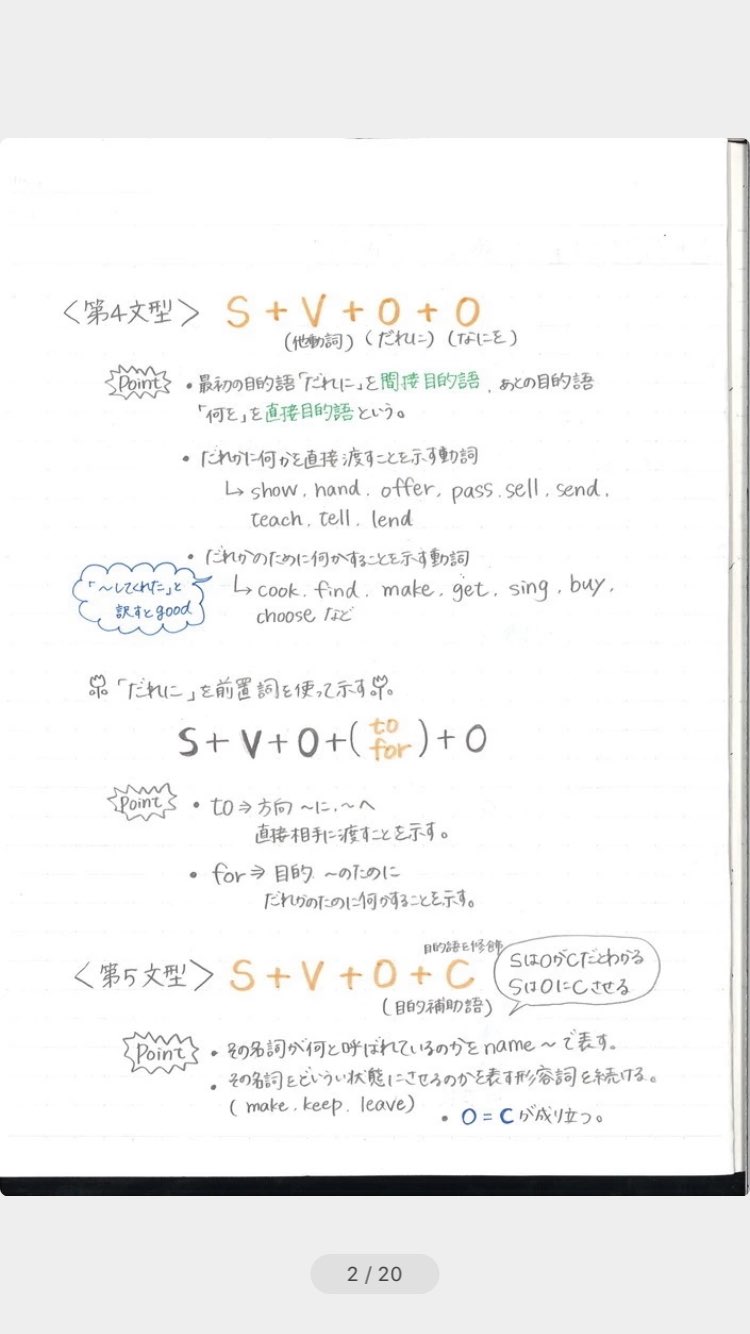 〈第4文型〉 S + V + O + O
(他動詞) (だれに) (なにを)
Point ・最初の目的語「だれに」を間接目的語、あとの目的語
「何を」を直接目的語という。
・だれかに何かを直接渡すことを示す動詞
↳ show, hand, offer, pass, sell, send,
teach, tell, lend
・だれかのために何かすることを示す動詞
「〜してくれた」と
訳すとgood
↳ cook, find, make, get, sing, buy,
choose など
「だれに」を前置詞を使って示す
S + V + O + (to for) + O
Point ・to ⇒ 方向 〜に、〜へ
直接相手に渡すことを示す。
・for ⇒ 目的 〜のために
だれかのために何かすることを示す。
目的語を修飾
〈第5文型〉 S + V + O + C
(目的補助語)
SはOがCだとわかる
SはOにCさせる
Point ・その名詞が何と呼ばれているのかをname〜で表す。
・その名詞をどいうい状態にさせるのかを表す形容詞を続ける。
(make, keep, leave)
・O = C が成り立つ。
2 / 20